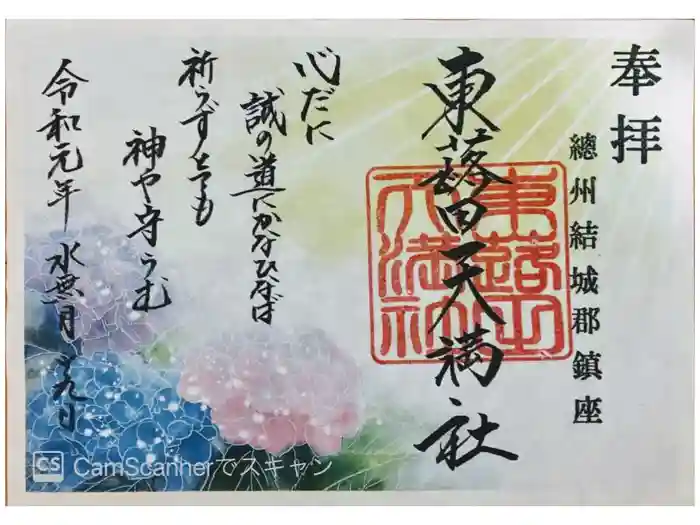 奉拝
總州結城郡鎮座
東蕗田天満社
東蕗田
天満社
心だに
誠の道にかなひなば
祈らずとても
神や守らむ
令和元年 水無月 十九日
CS CamScannerでスキャン